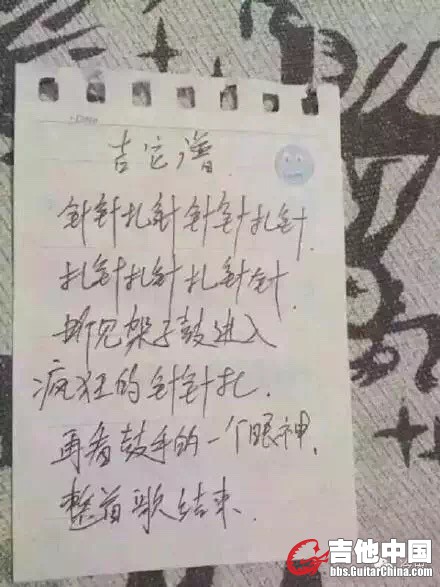 Date
吉它谱
针针扎针针针扎针
扎针扎针扎针针
听见架子鼓进入
疯狂的针针扎.
再看鼓手的一个眼神.
整首歌结束.
吉他中国
bbs.GuitarChina.com